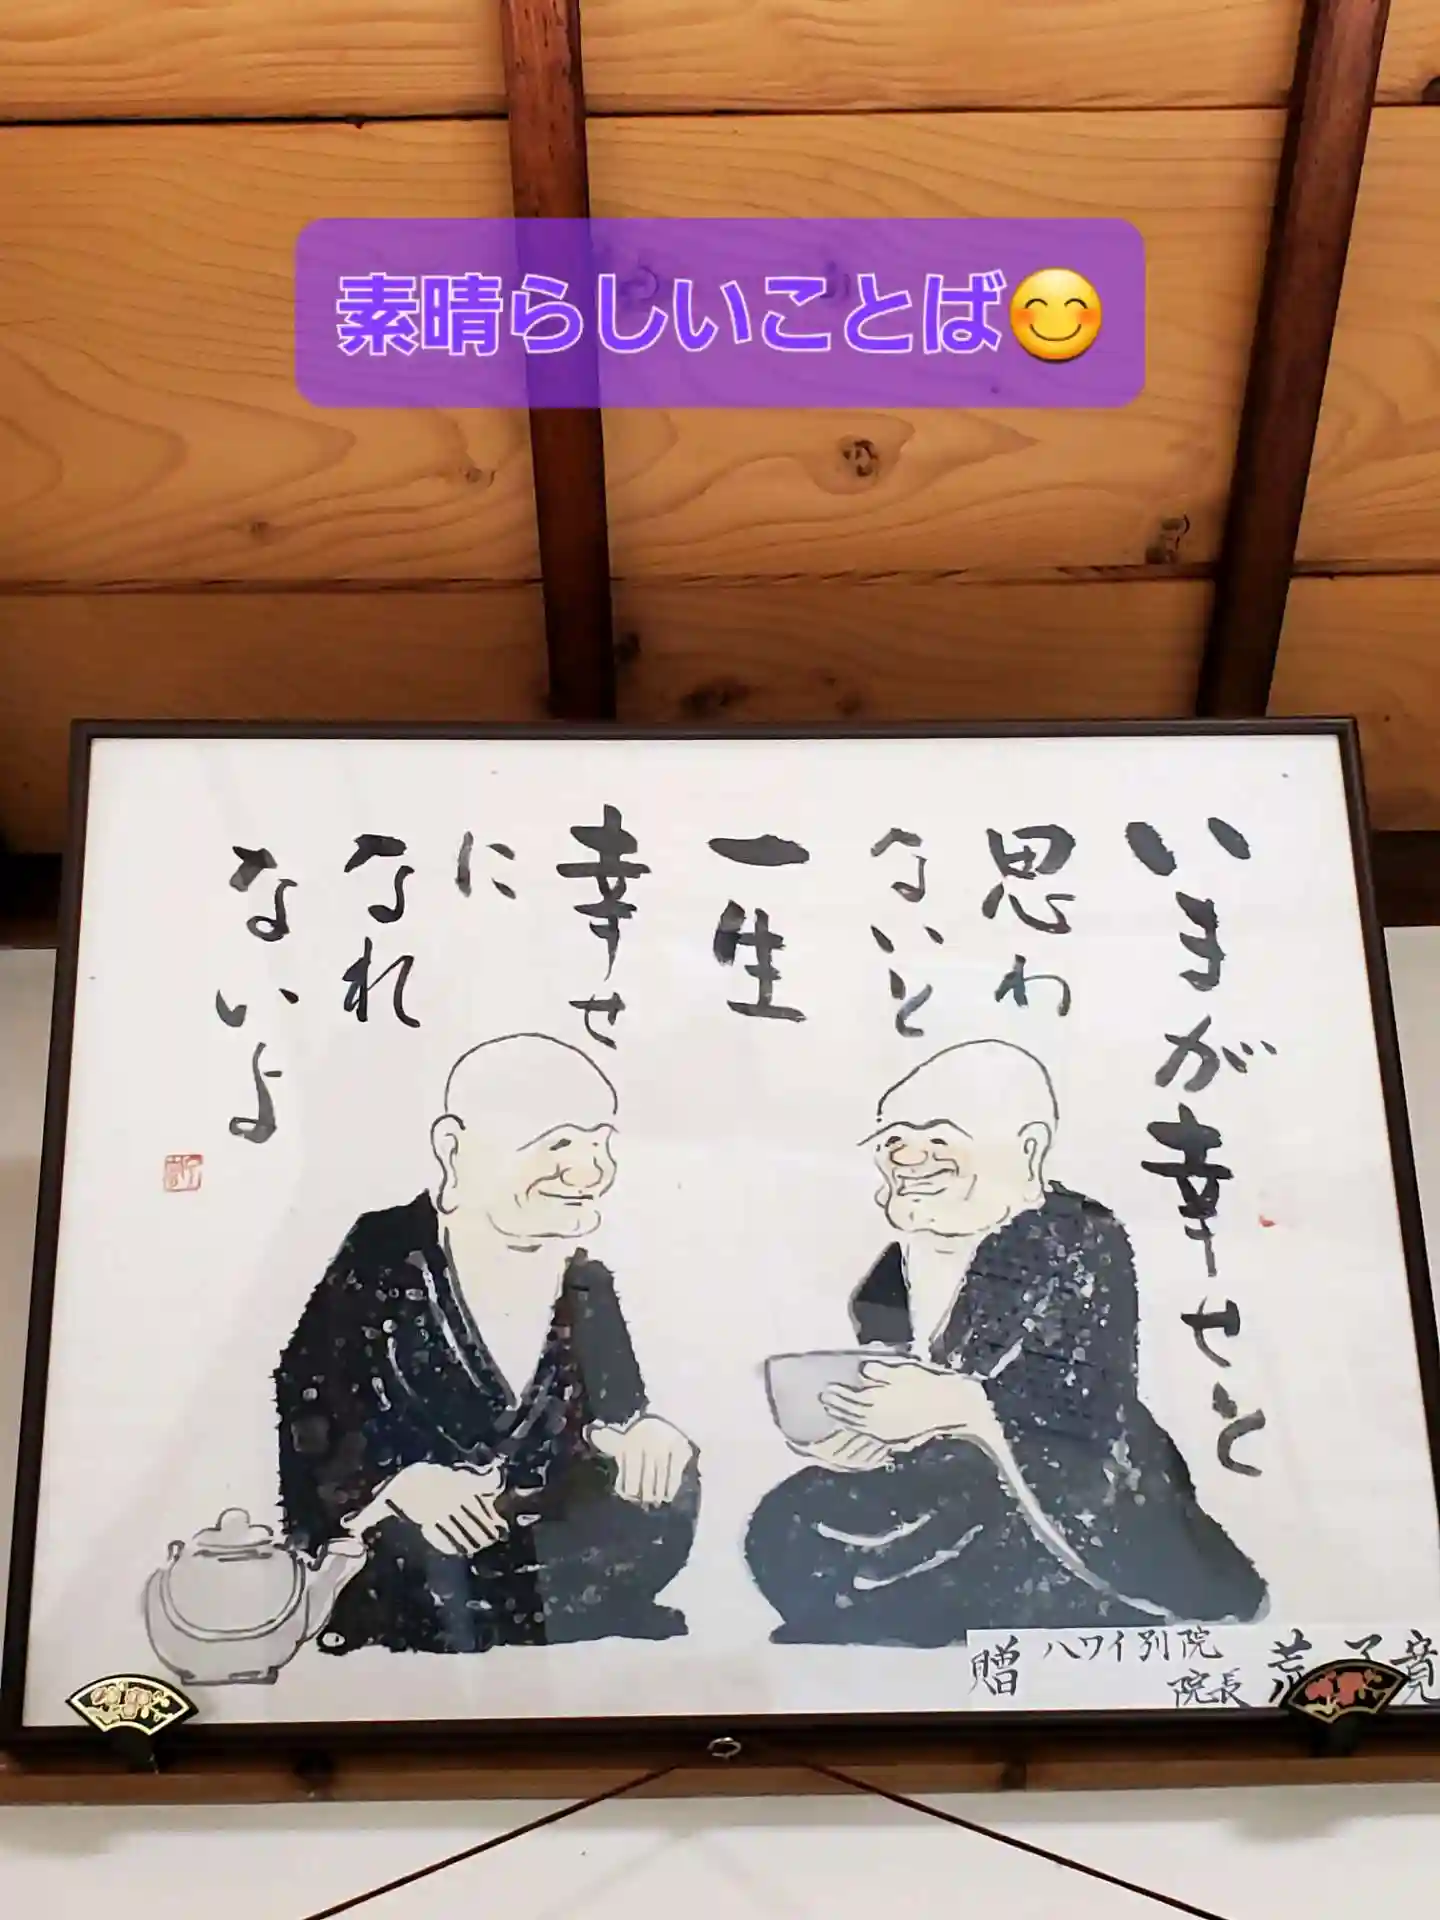 素晴らしいことば😊
いまが幸せと
思わ
ないと
一生
幸せ
に
なれ
ないよ
贈 ハワイ別院
院長 荒